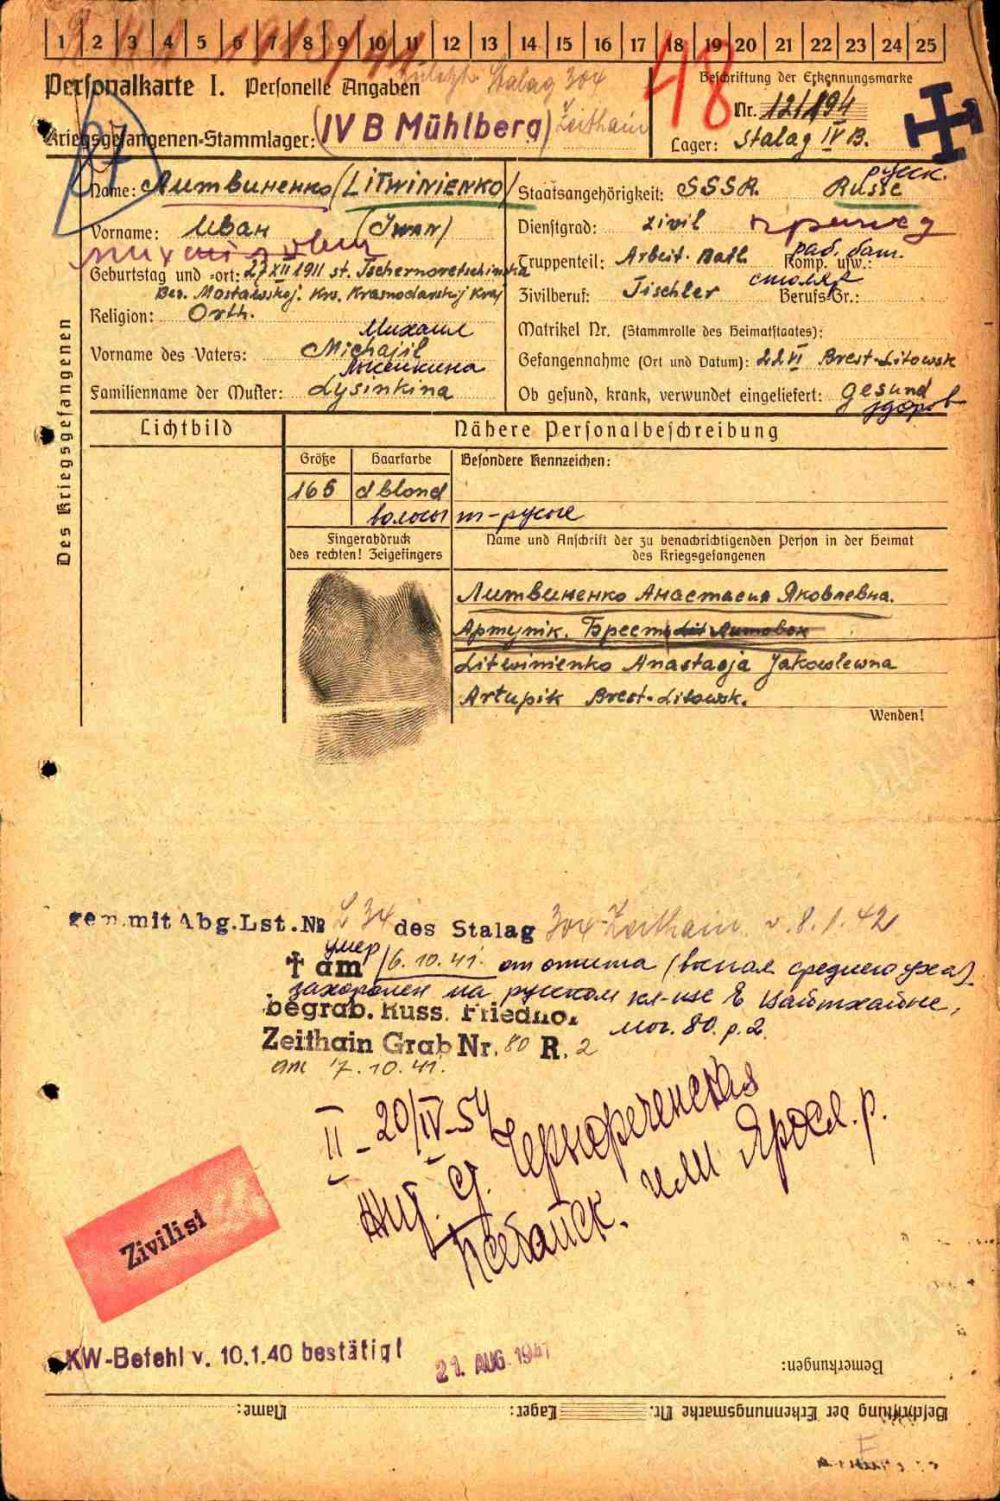 1 2 3 4 5 6 7 8 9 10 11 12 13 14 15 16 17 18 19 20 21 22 23 24 25
Personalkarte I. Personelle Angaben
zuletzt Stalag 304
Zeithain
48
Beschriftung der Erkennungsmarke
Nr. 121194
Kriegsgefangenen-Stammlager: (IV B Mühlberg)
Lager: Stalag IV B.
Des Kriegsgefangenen
Name: Литвиненко (LITWINIENKO)
Vorname: Иван (IWAN)
Михайлович
Geburtstag und -ort: 27 XII 1911 st. Tschernoretschinska
Bez. Mostowskoj. Krs. Krasnodarskij Kraj
Religion: Orth.
Михаил
Vorname des Vaters: Michajil
Лысенкина
Familienname der Mutter: Lysinkina
русск.
Staatsangehörigkeit: SSSR. Russe
Dienstgrad: zivil
раб. бат.
Truppenteil: Arbeit. Batl. Komp. usw.:
столяр
Zivilberuf: Tischler Berufs-Gr.:
Matrikel Nr. (Stammrolle des Heimatstaates):
Gefangennahme (Ort und Datum): 22 VI Brest-Litowsk
Ob gesund, krank, verwundet eingeliefert: gesund
здоров
Lichtbild
Nähere Personalbeschreibung
Größe Haarfarbe Besondere Kennzeichen:
165 d blond
волосы т-русые
Fingerabdruck
des rechten! Zeigefingers
Name und Anschrift der zu benachrichtigenden Person in der Heimat
des Kriegsgefangenen
Литвиненко Анастасия Яковлевна.
Артупик. Брест Lit Литовск
Litwinienko Anastasja Jakowlewna
Artupik Brest-Litowsk.
Wenden!
gem. mit Abg.Lst.Nº L 34 des Stalag 304 Zeithain v. 8.1.42
умер
† am 16.10.41. от отита (воспал среднего уха).
захоронен на русском кл-ще в Цайтхайне,
begrab. Russ. Friedhof
мог. 80. р. 2.
Zeithain Grab Nr. 80 R. 2
am 17.10.41.
II - 20/IV-54
ст. Чернореченская
Псебайск. или Яросл. р.
Zivilist
KW-Befehl v. 10.1.40 bestätigt
21. AUG. 1941
Bemerkungen:
Beschriftung der Erkennungsmarke Nr. Lager: Name: